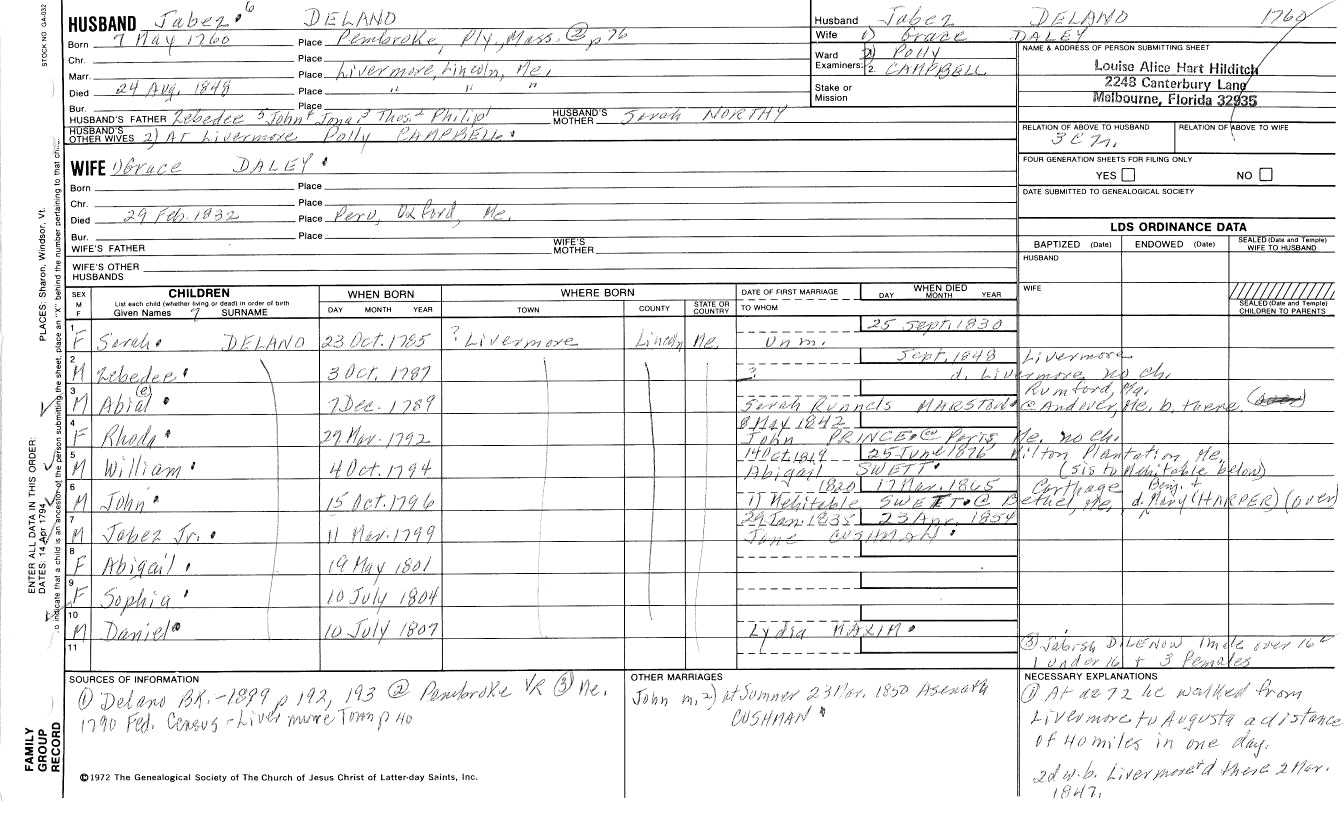 STOCK NO. GA-032
HUSBAND Jabez 6 DELANO
Born 7 May 1760 Place Pembroke, Ply, Mass. ② p 76
Chr. Place
Marr. Place Livermore, Lincoln, Me,
Died 24 Aug, 1848 Place " " "
Bur. Place
HUSBAND'S FATHER Zebedee 5 John 4 Jona 3 Thos. 2 Philip 1 HUSBAND'S MOTHER Sarah NORTHY
HUSBAND'S OTHER WIVES 2) At Livermore Polly CAMPBELL
WIFE 1) Grace DALEY
Born Place
Chr. Place
Died 29 Feb. 1832 Place Peru, Oxford, Me.
Bur. Place
WIFE'S FATHER WIFE'S MOTHER
WIFE'S OTHER HUSBANDS
Husband Jabez DELANO 1760
Wife 1) Grace DALEY
Ward 2) Polly
Examiners: 2. CAMPBELL
Stake or Mission
NAME & ADDRESS OF PERSON SUBMITTING SHEET
Louise Alice Hart Hilditch
2248 Canterbury Lane
Melbourne, Florida 32935
RELATION OF ABOVE TO HUSBAND RELATION OF ABOVE TO WIFE
FOUR GENERATION SHEETS FOR FILING ONLY
YES NO
DATE SUBMITTED TO GENEALOGICAL SOCIETY
LDS ORDINANCE DATA
BAPTIZED (Date) ENDOWED (Date) SEALED (Date and Temple) WIFE TO HUSBAND
HUSBAND
WIFE
SEALED (Date and Temple) CHILDREN TO PARENTS
SEX M F
CHILDREN
List each child (whether living or dead) in order of birth
Given Names SURNAME
WHEN BORN
DAY MONTH YEAR
WHERE BORN
TOWN COUNTY STATE OR COUNTRY
DATE OF FIRST MARRIAGE
TO WHOM
WHEN DIED
DAY MONTH YEAR
1 F Sarah DELANO 23 Oct. 1785 ? Livermore Lincoln Me. Unm. 25 Sept. 1830
2 M Zebedee 3 Oct. 1787 ? Sept, 1848 Livermore
d. Livermore, no ch.
3 M Abial (e) 7 Dec. 1789 Sarah Runnels MARSTON @ Andover, Me, b. there. Rumford, Me.
4 F Rhoda 29 Mar. 1792 8 May 1842
John PRINCE @ Paris, Me. no ch.
5 M William 4 Oct. 1794 14 Oct. 1819 25 June 1876 Milton Plantation, Me.
Abigail SWETT (sis to Mehitable below)
6 M John 15 Oct. 1796 1820 17 Mar. 1865 Carthage
1) Mehitable SWETT @ Bethel, Me, d. Benj. + Mary (HARPER) (over)
7 M Jabez Jr. 11 Mar. 1799 29 Jan. 1835 23 Apr. 1854
Jane CUSHMAN
8 F Abigail 19 May 1801
9 F Sophia 10 July 1804
10 M Daniel 10 July 1807 Lydia HALIM
11
③ Jabish DILENOW 1 male over 16
1 under 16 + 3 Females
SOURCES OF INFORMATION
① Delano BK. -1899 p 192, 193 ② Pembroke VR ③ Me.
1790 Fed. Census - Livermore Town p 40
OTHER MARRIAGES
John m. 2) at Sumner 23 Mar. 1850 Asenath
CUSHMAN
NECESSARY EXPLANATIONS
① At ae 72 he walked from
Livermore to Augusta a distance
of 40 miles in one day.
2d w. b. Livermore + d there 2 Mar.
1847.
©1972 The Genealogical Society of The Church of Jesus Christ of Latter-day Saints, Inc.
FAMILY GROUP RECORD
ENTER ALL DATA IN THIS ORDER:
DATES: 14 Apr 1794
PLACES: Sharon, Windsor, Vt.